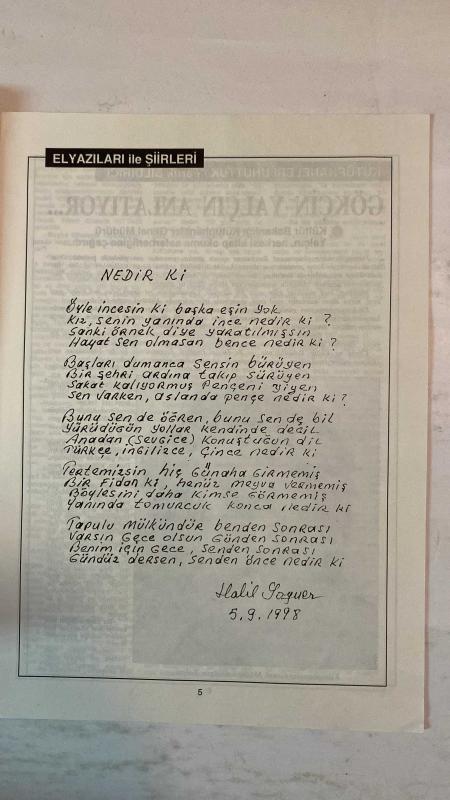 ELYAZILARI ile ŞİİRLERİ
NEDİR Kİ
Öyle incesin ki başka eşin yok
Kız, senin yanında ince nedir ki?
Sanki örnek diye yaratılmışsın
Hayat sen olmasan bence nedir ki?
Başları dumanca sensin bürüyen
Bir şehri ardına takıp sürüyen
Sakat kalıyormuş pençeni yiyen
Sen varken, aslanda pençe nedir ki?
Bunu sen de öğren, bunu sen de bil
Yürüdüğün yollar kendinde değil
Anadan (sevgice) konuştuğun dil
Türkçe, ingilizce, Çince nedir ki
Tertemizsin hiç günaha girmemiş
Bir fidan ki, henüz meyva vermemiş
Böylesini daha kimse görmemiş
Yanında tomurcuk konca nedir ki
Tapulu mülkündür benden sonrası
Varsın gece olsun günden sonrası
Benim için gece, senden sonrası
Gündüz dersen, senden önce nedir ki
Halil Soyuer
5.9.1998
5